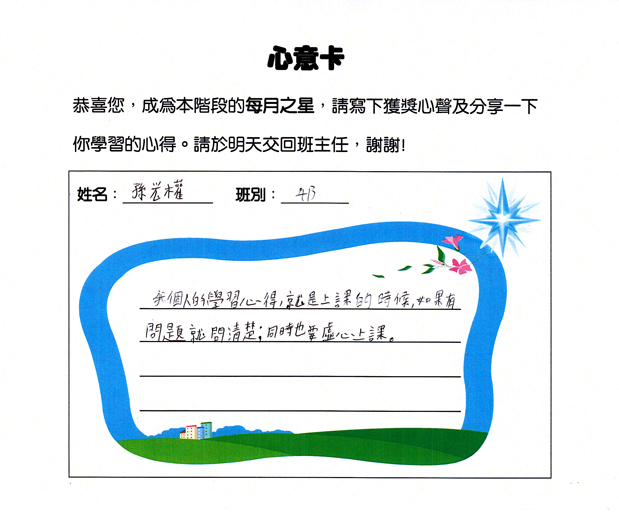 心意卡
恭喜您，成為本階段的每月之星，請寫下獲獎心聲及分享一下
你學習的心得。請於明天交回班主任，謝謝!
姓名：孫权權 班別：4B
我個人的學習心得，就是上課的時候，如果有
問題就問清楚；同時也要虛心上課。